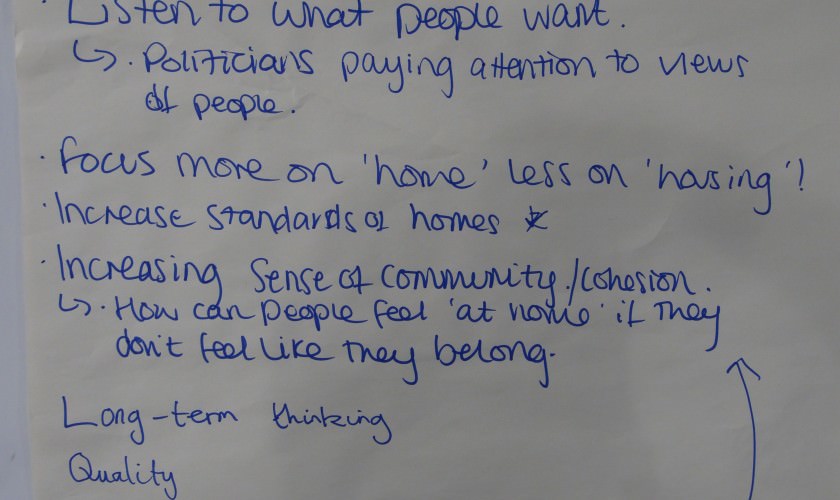 · Listen to what people want.
↳ · Politicians paying attention to views
of people.
· Focus more on 'home' less on 'housing'!
· Increase standards of homes *
· Increasing sense of community/cohesion.
↳ · How can people feel 'at home' if they
don't feel like they belong.
Long-term thinking
Quality